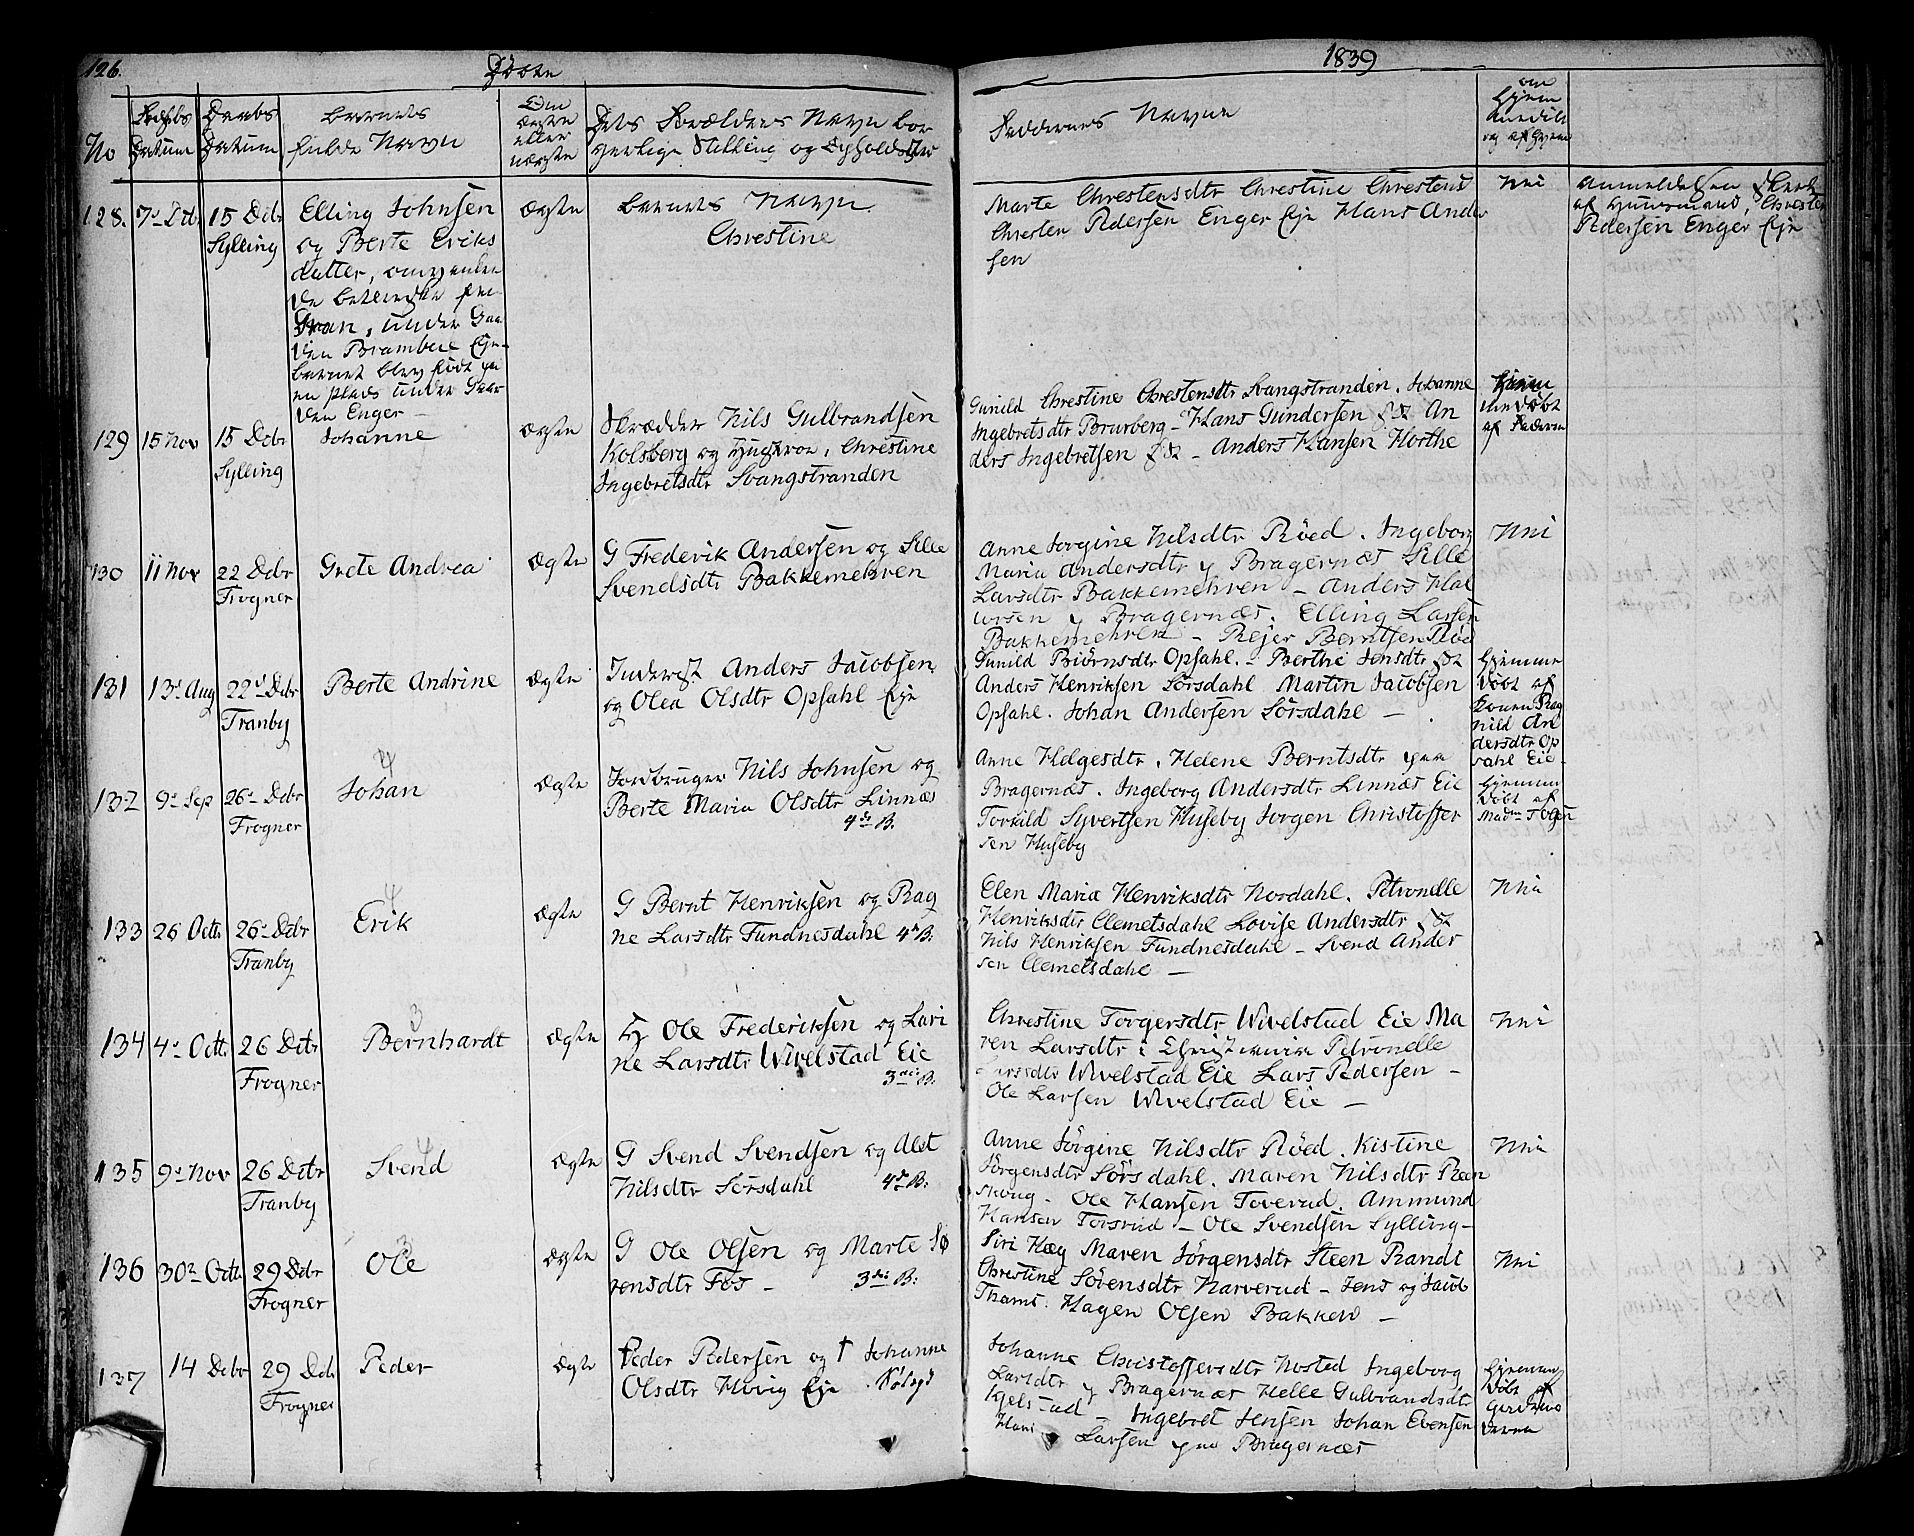 126.
Døbte
1839
No
Fødsels Datum
Daabs Datum
Barnets fulde Navn
Om ægte eller uægte
Dets Forældres Navn bor
gerlige Stilling og Opholdssted
Faddernes Navne
om Hjem
128. 7de Dcbr 15 Dcbr Sylling
Elling Johnsen
og Berte Eriks
datter, omvanken
de betlende fra
Gran, under Gaa
den Brambue Eje
barnet blev født paa
en Plads under Gaar
den Enger
ægte
barnets Navn
Chrestine
Marte Chrestensdtr Chrestine Chrestens
Chresten Pedersen Enger Eje Hans Ander
sen
Nei
Anmeldelsen skeet
af Huusmand, Chresten
Pedersen Enger Eje
129 15 Nov 15 Dcbr Sylling
Johanne
ægte
Skrædder Nils Gulbrandsen
Kolsberg og Hustroe, Chrestine
Ingebretsdtr Svangstranden
Gunild Chrestine Chrestensdtr Svangstranden. Johanne
Ingebretsdtr Brurberg - Hans Gundersen An
ders Ingebretsen - Anders Hansen Horthe
Hjem
me døbt
af Faderen
130 11 Nov 22 Dcbr Frogner
Grete Andrea
ægte
G Frederik Andersen og Sille
Svendsdtr Bakkemehren
Anne Jorgine Nilsdtr Röed. Ingeborg
Maria Andersdtr paa Bragernæs Sille
Larsdtr Bakkemehren - Anders Hal
vorsen paa Bragernæs. Elling Larsen
Bakkemehren - Rejer Berntsen Röe
Nei
131 13de Aug 22de Dcbr Tranby
Berte Andrine
ægte
Inderst Anders Jacobsen
og Olea Olsdtr Opsahl Eje
Gunild Biörnsdtr Opsahl. - Berthe Jensdtr
Anders Henriksen Sörsdahl Martin Jacobsen
Opsahl. Johan Andersen Sörsdahl -
Hjemme
døbt af
Konen Rag
nild An
dersdtr Op
sahl Eie
132 9de Sep 26de Dcbr Frogner
4
Johan
ægte
Jordbruger Nils Johnsen og
Berte Maria Olsdtr Linnæs
4de B.
Anne Helgesdtr. Helene Berntsdtr paa
Bragernæs. Ingeborg Andersdtr Linnæs Eie
Torkild Syvertsen Huseby Jorgen Christoffer
sen Huseby
Hjemme
døbt af
133 26 Octr 26de Dcbr Tranby
4
Erik
ægte
G Bernt Henriksen og Rag
ne Larsdtr Tundnesdahl 4de B.
Elen Maria Henriksdtr Nordahl. Petronelle
Henriksdtr Clemetsdahl Lovise Andersdtr
Nils Henriksen Tundnesdahl - Svend Ander
sen Clemetsdahl -
Nei
134 4de Octr 26 Dcbr Frogner
3
Bernhardt
ægte
Hm Ole Frederiksen og Lari
ne Larsdtr Wivelstad Eie
3die B.
Chrestine Torgersdtr Wivelstad Eie Ma
ren Larsdtr i Christiania Petronelle
Larsdtr Wivelstad Eie Lars Pedersen -
Ole Larsen Wivelstad Eie -
Nei
135 9de Nov 26 Dcbr Tranby
4
Svend
ægte
G Svend Svendsen og Alet
Nilsdtr Sörsdahl 4de B.
Anne Jörgine Nilsdtr Röed. Kistine
Jörgensdtr Sörsdahl. Maren Nilsdtr Reen
skoug. Ole Hansen Toverud. Ammund
Hansen Torsrud - Ole Svendsen Sylling -
Nei
136 30te Octr 29 Dcbr Frogner
3
Ole
ægte
G Ole Olsen og Marte Sø
rensdtr Fos - 3die B.
Siri Hæg Maren Jörgensdtr Steen Randi
Chrestine Sörensdtr Narverud - Jens og Jacob
Thams. Hagen Olsen Bakken -
Nei
137 14 Dcbr 29 Dcbr Frogner
Peder
ægte
Peder Pedersen og † Johanne
Olsdtr Hvig Eje.
Johanne Christoffersdtr Nosted Ingeborg
Larsdtr paa Bragernæs Helle Gulbrandsdtr
- Ingebret Jensen Johan Evensen
Hans Larsen paa Bragernæs
Hjemme
døbt af